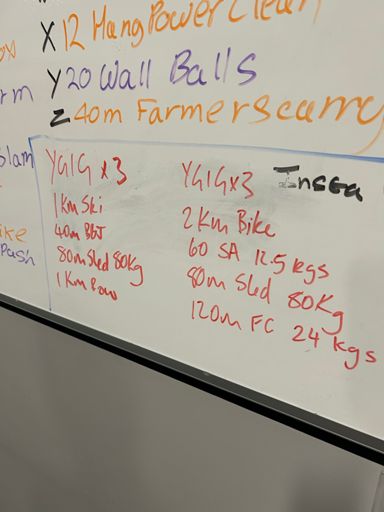 X 12 Hang Power Clean
Y 20 Wall Balls
Z 40m Farmers carry
YGIG x 3
1 Km Ski
40m BBJ
80m Sled 80Kg
1 Km Row
YGIG x 3 Insta
2 Km Bike
60 SA 12.5 kgs
80m Sled 80Kg
120m FC 24 kgs
rm
slam
ike
Push